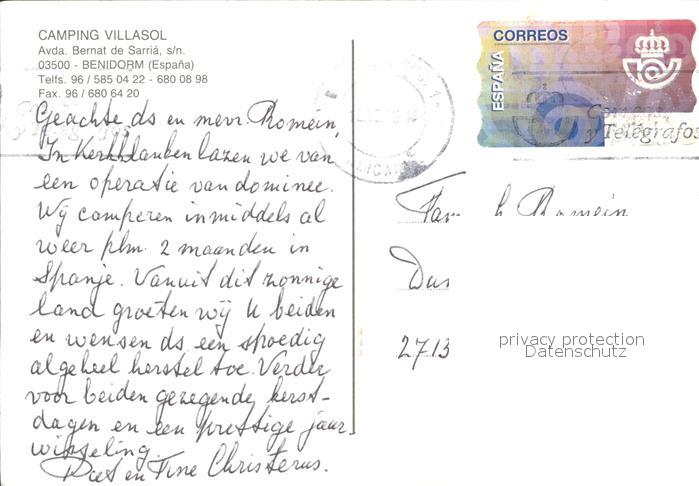 CAMPING VILLASOL
Avda. Bernat de Sarriá, s/n.
03500 - BENIDORM (España)
Telfs. 96 / 585 04 22 - 680 08 98
Fax. 96 / 680 64 20
Geachte ds en mevr. Romein,
In Kerkblauben lazen we van
een operatie van dominee.
Wij camperen inmiddels al
weer plm. 2 maanden in
Spanje. Vanuit dit zonnige
land groeten wij U beiden
en wensen ds een spoedig
algeheel herstel toe. Verder
voor beiden gezegende kerst-
dagen en een prettige jaar-
wisseling.
Piet en Tine Christerus.
CORREOS
ESPAÑA
Correos
y Telégrafos
Fam h Romein
Dus
2713
privacy protection
Datenschutz